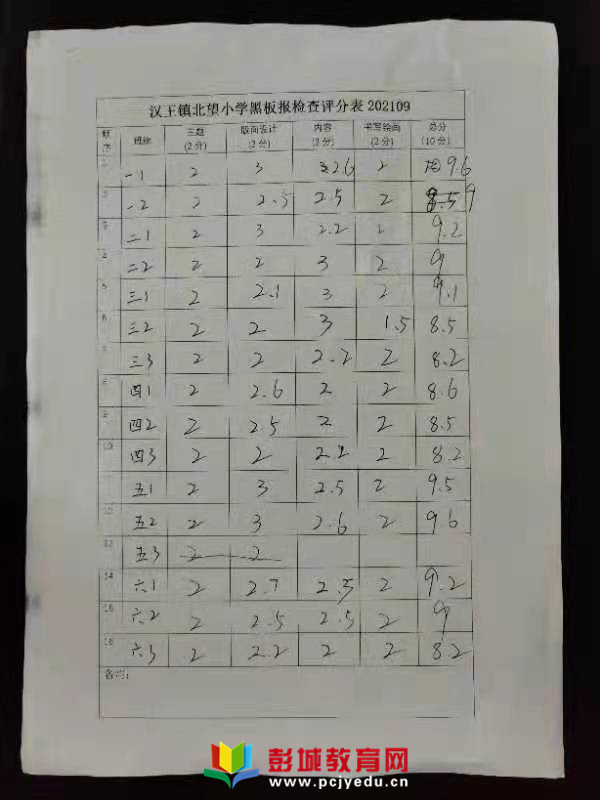 汉王镇北望小学黑板报检查评分表 202109
班级 主题 (2分) 版面设计 (3分) 内容 (3分) 书写绘画 (2分) 总分 (10分)
一1 2 3 2.6 2 9.6
一2 2 2.5 2.5 2 9
二1 2 3 2.2 2 9.2
二2 2 2 3 2 9
5 三1 2 2.1 3 2 9.1
6 三2 2 2 3 1.5 8.5
三3 2 2 2.2 2 8.2
8 四1 2 2.6 2 2 8.6
9 四2 2 2.5 2 2 8.5
10 四3 2 2 2.2 2 8.2
五1 2 3 2.5 2 9.5
五2 2 3 2.6 2 9.6
13 五3 2 2
14 六1 2 2.7 2.5 2 9.2
15 六2 2 2.5 2.5 2 9
16 六3 2 2.2 2 2 8.2
备注:
彭城教育网
www.pcjyedu.cn